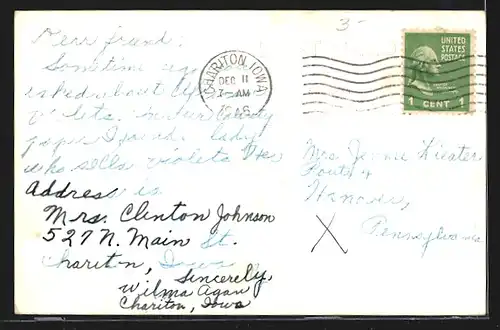 3-
UNITED
STATES
POSTAGE
1 CENT 1
CHARITON, IOWA
DEC 11
7-AM
Dear friend:
Sometime ago
asked about
violets. In our County
paper I found a lady
who sells violets Her
Address is
Mrs. Clinton Johnson
527 N. Main St.
Chariton, Iowa
Sincerely,
Wilma Agan
Chariton, Iowa
Mrs. Jennie
Route 4
Hanover,
Pennsylvania
X